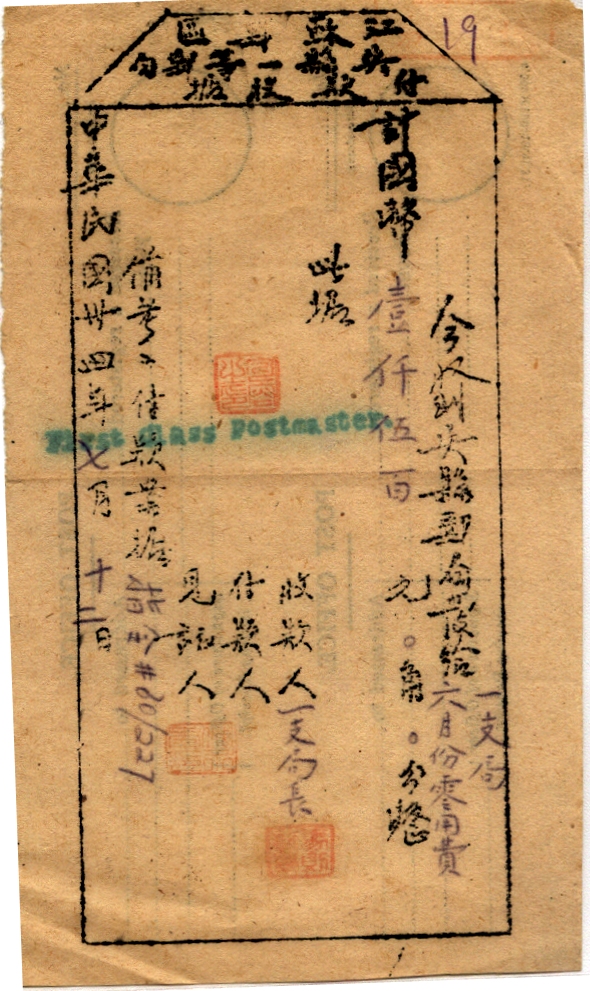 19
江蘇郵區
吳縣一等郵局
付款收據
今收到吳縣郵局發給一支局六月份零用費
計國幣壹仟伍百元〇角〇分整
此據
收款人一支局長
付款人
見証人
備考:付款單據
中華民國卅四年七月十二日
First Class Postmaster.
POST OFFICE